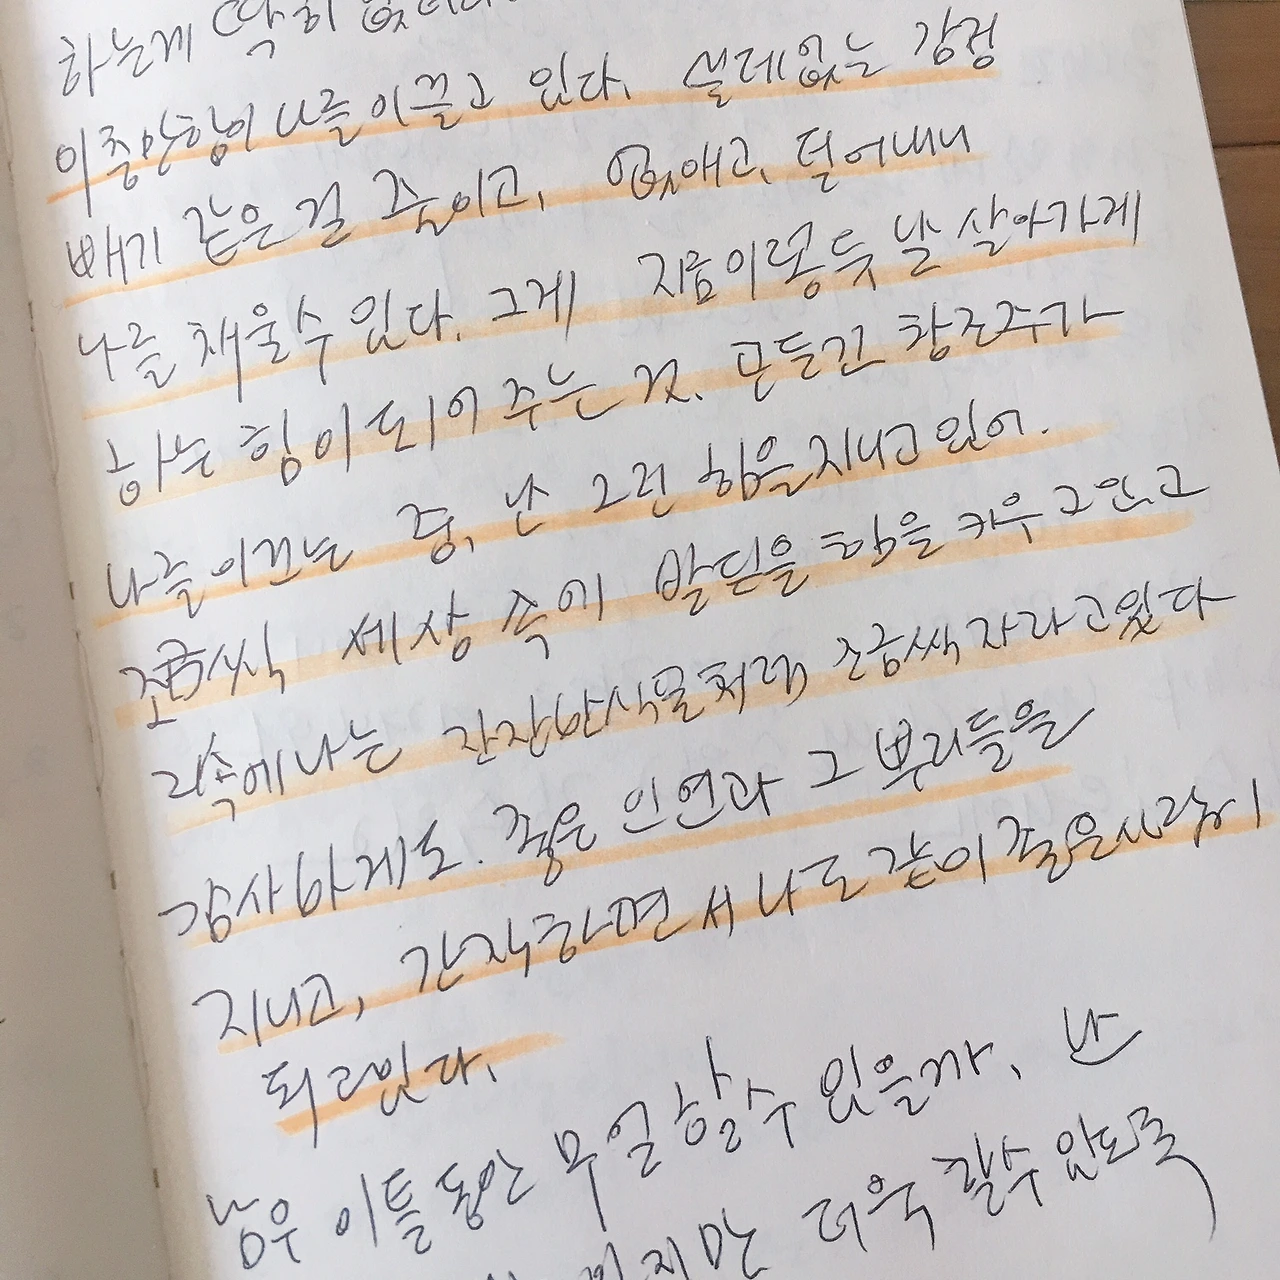 하는게 딱히 없더라
이중약형이 나를 이끌고 있다. 쓸데없는 감정
빼기 같은 걸 줄이고, 없애고, 덜어내니
나를 채울수 있다. 그게 지금이렇듯 날 살아가게
하는 힘이 되어 주는 것. 만들긴 창조주가
나를 이끄는 중, 난 그런 힘을 지니고 있어.
조금씩 세상 속에 발딛을 힘을 키우고있고
그속에 나는 잔잔한 식물처럼 조금씩 자라고있다
감사하게도. 좋은 인연과 그 뿌리들을
지니고, 간직하면서 나도 같이 좋은사람이
되고있다.
남은 이틀동안 무얼 할수 있을까, 난
하지만 더욱 잘할수 있도록